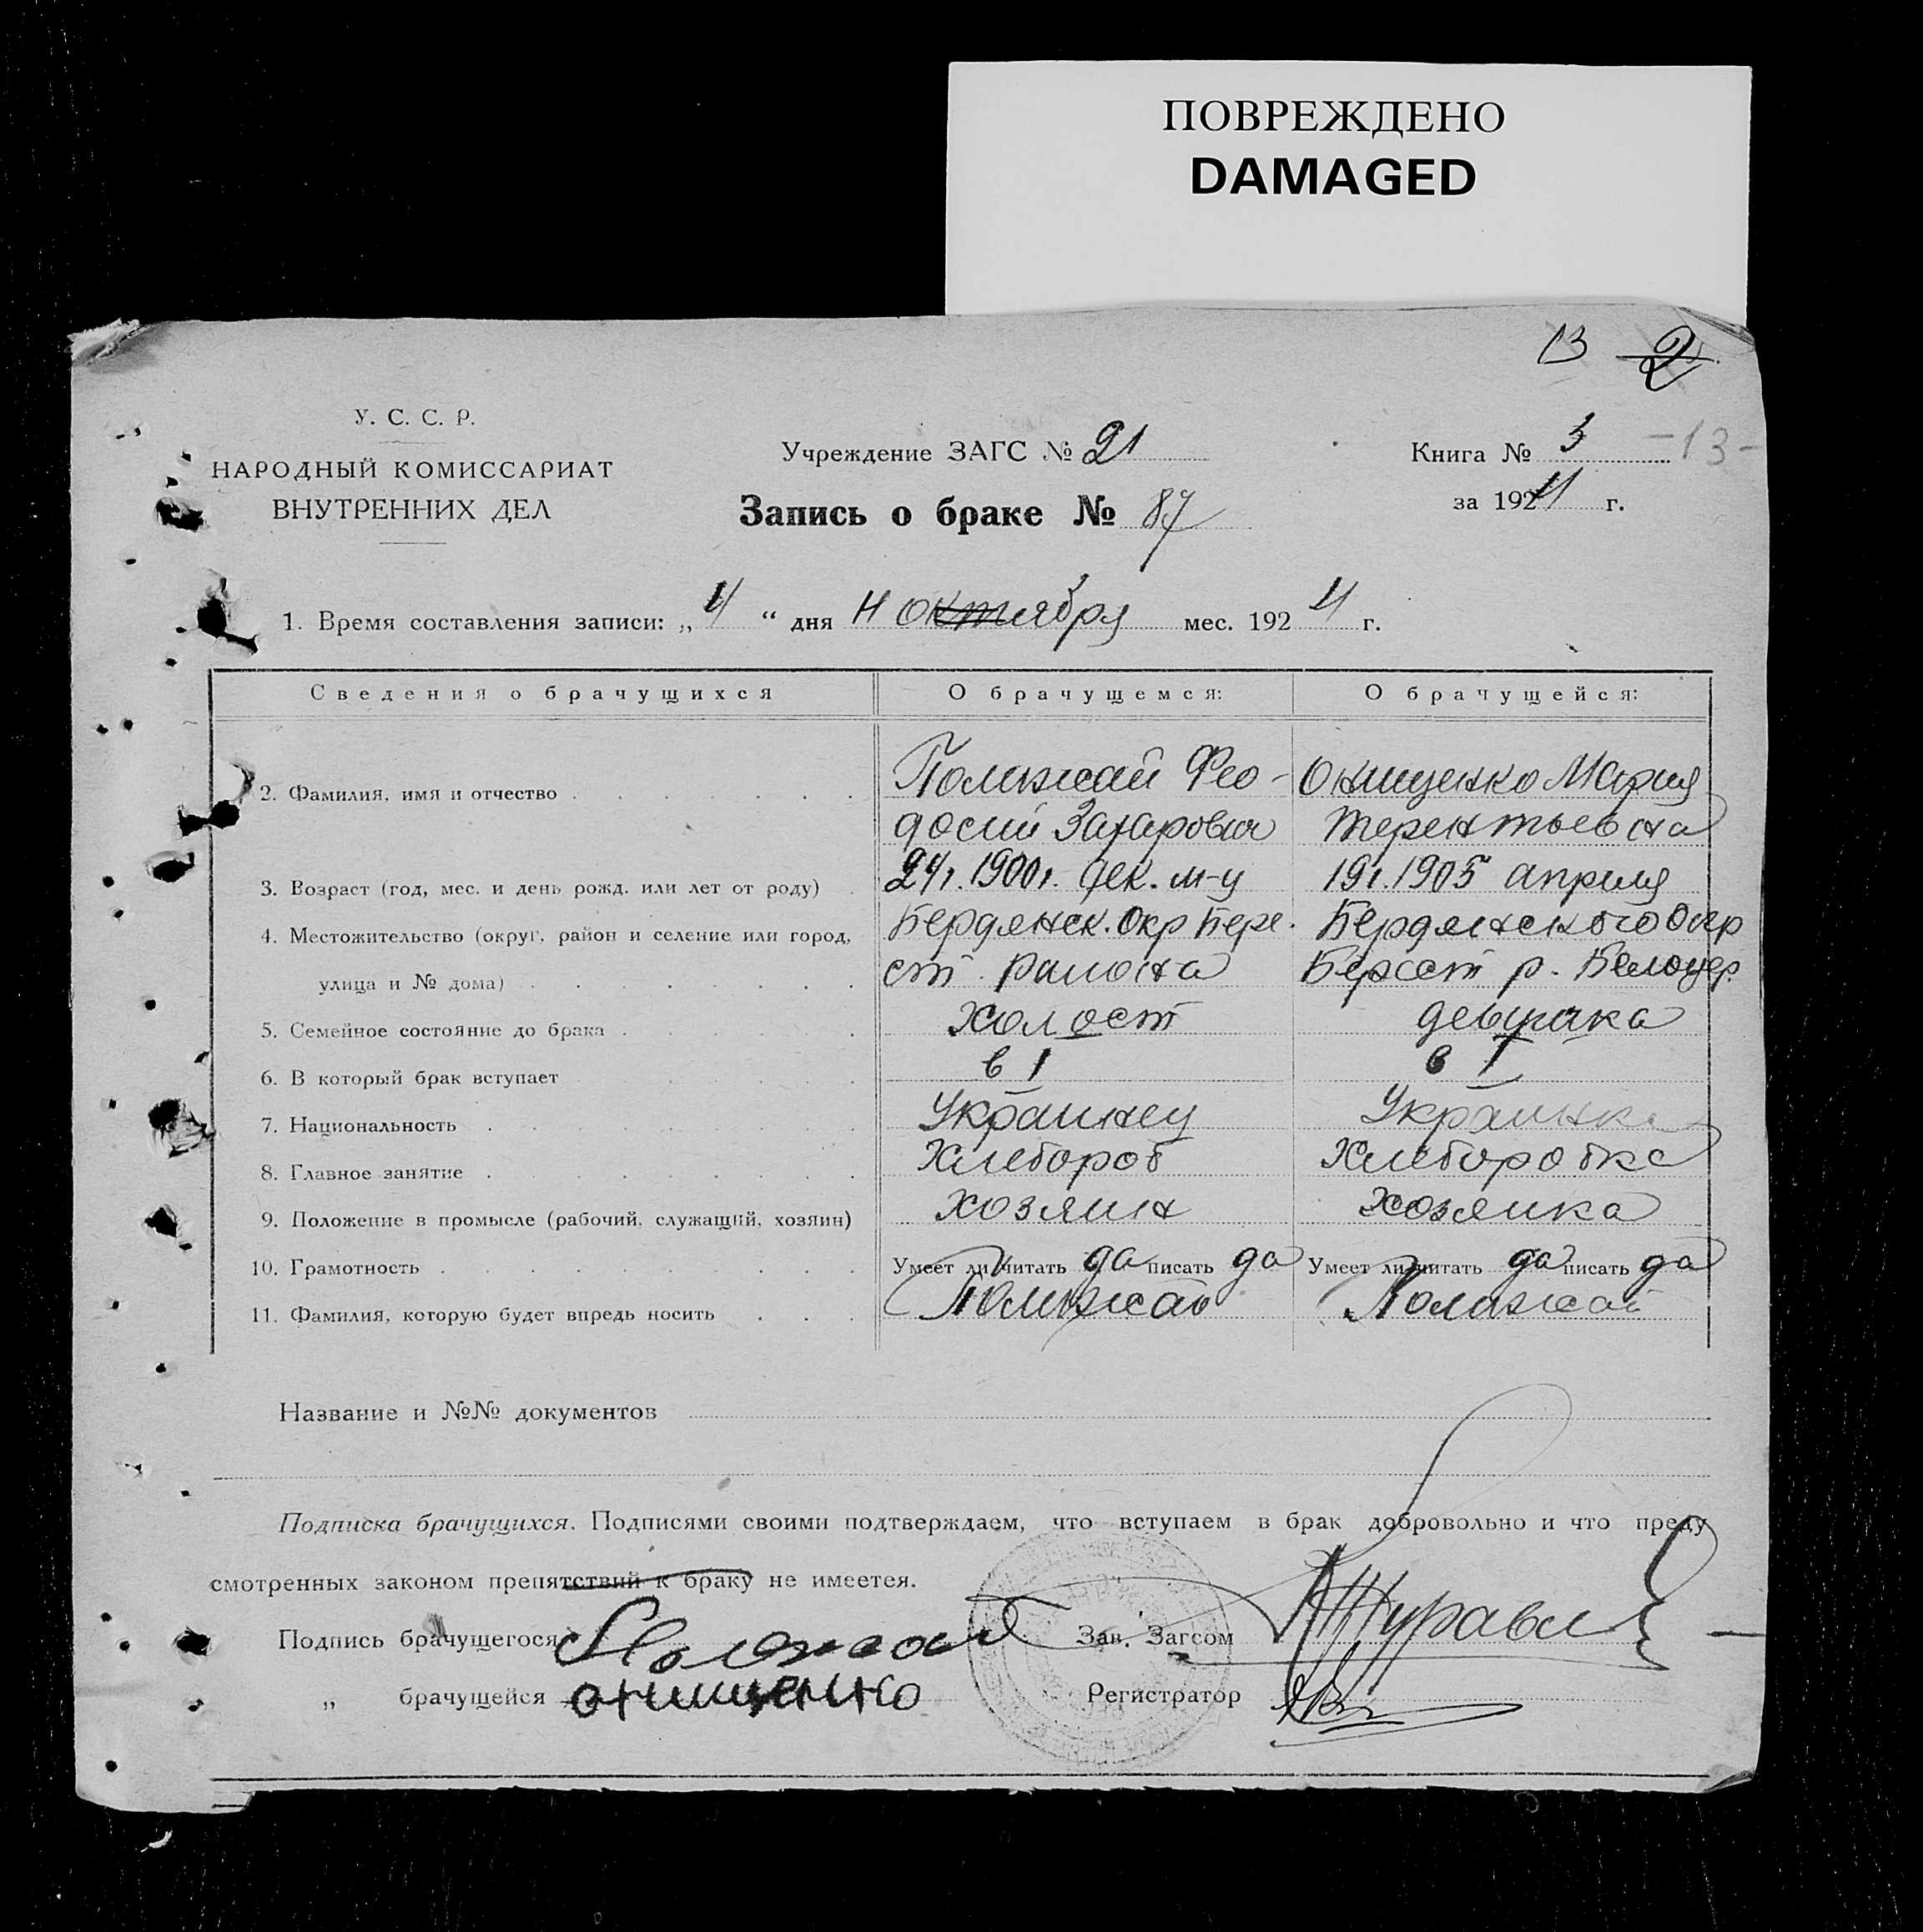 ПОВРЕЖДЕНО
DAMAGED
13 2
У. С. С. Р.
НАРОДНЫЙ КОМИССАРИАТ
ВНУТРЕННИХ ДЕЛ
Учреждение ЗАГС № 21
Запись о браке № 87
Книга № 3 -13-
за 1924 г.
1. Время составления записи: „4“ дня ноября мес. 1924 г.
Сведения о брачущихся О брачущемся: О брачущейся:
2. Фамилия, имя и отчество Полижай Фео- Онищенко Мария
досий Захарович Терентьевна
3. Возраст (год, мес. и день рожд. или лет от роду) 24 г. 1900 г. дек. м-ц 19 г. 1905 апреля
4. Местожительство (округ, район и селение или город, Бердянск. Окр Бере- Бердянского Окр
улица и № дома) ст района Берест р. Белоцер.
5. Семейное состояние до брака холост девушка
6. В который брак вступает в 1 в 1
7. Национальность Украинец Украинка
8. Главное занятие Хлебороб Хлеборобка
9. Положение в промысле (рабочий, служащий, хозяин) хозяин хозяйка
10. Грамотность Умеет ли читать да писать да Умеет ли читать да писать да
11. Фамилия, которую будет впредь носить Полижай Полижай
Название и №№ документов
Подписка брачущихся. Подписями своими подтверждаем, что вступаем в брак добровольно и что преду
смотренных законом препятствий к браку не имеетея.
Подпись брачущегося Полижай Зав. Загсом Журавл
„ брачущейся онищенко Регистратор